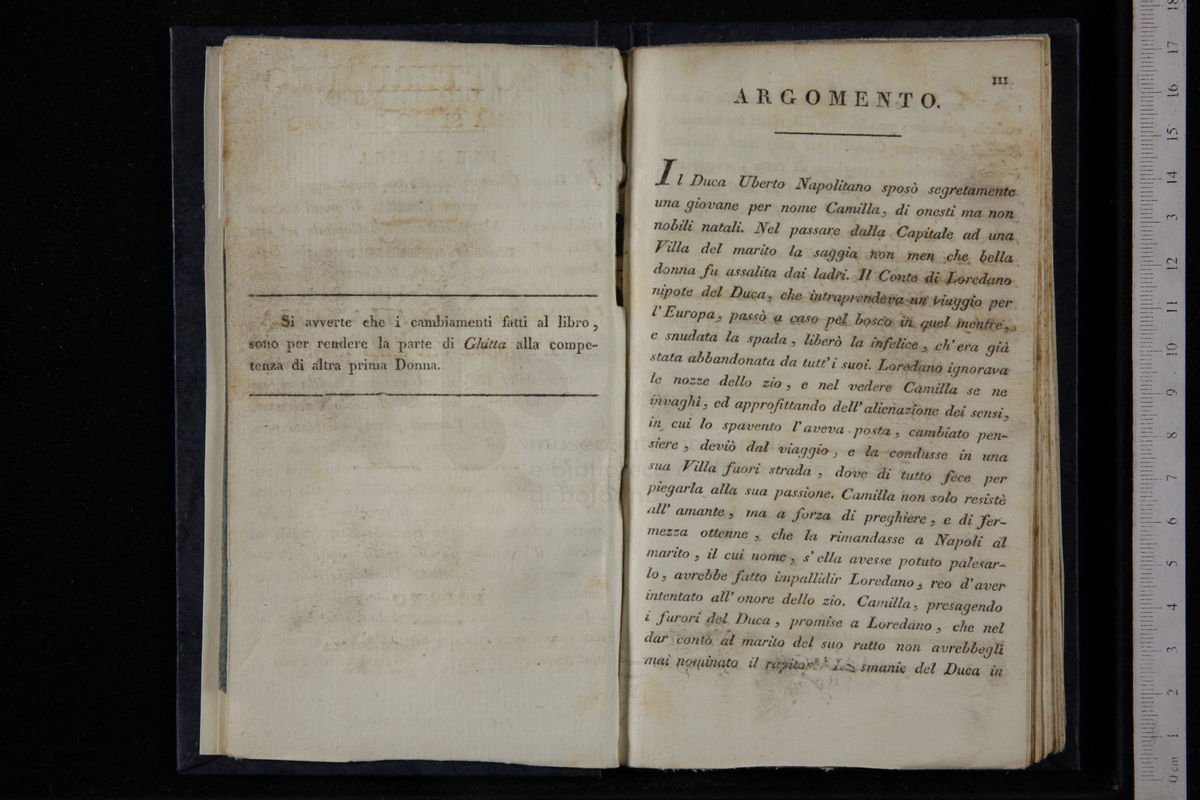 Si avverte che i cambiamenti fatti al libro,
sono per rendere la parte di Ghitta alla compe-
tenza di altra prima Donna.
III
ARGOMENTO.
Il Duca Uberto Napolitano sposò segretamente
una giovane per nome Camilla, di onesti ma non
nobili natali. Nel passare dalla Capitale ad una
Villa del marito la saggia non men che bella
donna fu assalita dai ladri. Il Conte di Loredano
nipote del Duca, che intraprendeva un viaggio per
l'Europa, passò a caso pel bosco in quel mentre,
e snudata la spada, liberò la infelice, ch'era già
stata abbandonata da tutt'i suoi. Loredano ignorava
le nozze dello zio, e nel vedere Camilla se ne
invaghì, ed approfittando dell'alienazione dei sensi,
in cui lo spavento l'aveva posta, cambiato pen-
siere, deviò dal viaggio, e la condusse in una
sua Villa fuori strada, dove di tutto fece per
piegarla alla sua passione. Camilla non solo resistè
all'amante, ma a forza di preghiere, e di fer-
mezza ottenne, che la rimandasse a Napoli al
marito, il cui nome, s'ella avesse potuto palesar-
lo, avrebbe fatto impallidir Loredano, reo d'aver
intentato all'onore dello zio. Camilla, presagendo
i furori del Duca, promise a Loredano, che nel
dar conto al marito del suo ratto non avrebbegli
mai nominato il rapitor smanie del Duca in